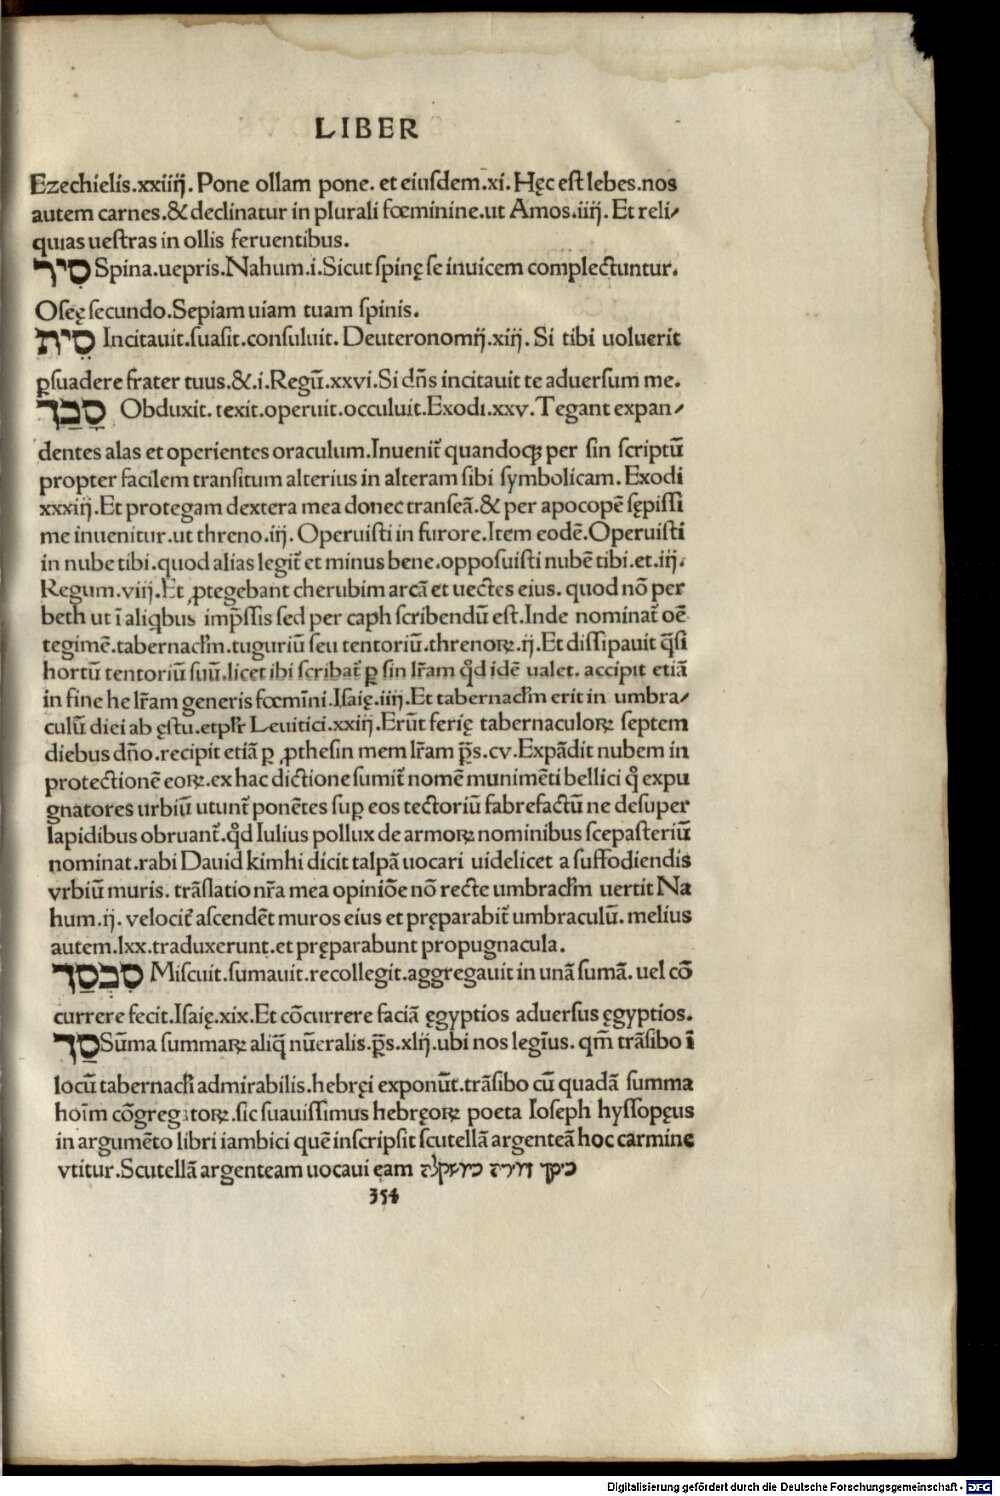 LIBER
Ezechielis.xxiiij. Pone ollam pone. et eiusdem.xi. Hęc est lebes.nos
autem carnes.& declinatur in plurali fœminine.ut Amos.iiij. Et reli/
quias uestras in ollis feruentibus.
סִיר Spina.uepris.Nahum.i.Sicut spinę se inuicem complectuntur.
Oseę secundo.Sepiam uiam tuam spinis.
סִית Incitauit.suasit.consuluit. Deuteronomij.xiij. Si tibi uoluerit
ꝑsuadere frater tuus.&.i.Regū.xxvi.Si dn̄s incitauit te aduersum me.
סָבַךְ Obduxit. texit.operuit.occuluit.Exodi.xxv.Tegant expan/
dentes alas et operientes oraculum.Inuenit᷑ quandoqꝫ per sin scriptū
propter facilem transitum alterius in alteram sibi symbolicam. Exodi
xxxiij.Et protegam dextera mea donec transeā.& per apocopē sępissi
me inuenitur.ut threno.iij. Operuisti in furore.Item eodē.Operuisti
in nube tibi.quod alias legit᷑ et minus bene.opposuisti nubē tibi.et.iij.
Regum.viij.Et ꝓtegebant cherubim arcā et uectes eius. quod nō per
beth ut ī aliqbus imp̄ssis sed per caph scribendū est.Inde nominat᷑ oē
tegimē.tabernacl̄m.tuguriū seu tentoriū.threnoꝝ.ij. Et dissipauit q̄si
hortū tentoriū suū.licet ibi scribat᷑ ꝑ sin lr̄am qd̄ idē ualet. accipit etiā
in fine he lr̄am generis fœmīni.Isaię.iiij.Et tabernacl̄m erit in umbra/
culū diei ab ęstu.et pl̄r Leuitici.xxiij.Erūt ferię tabernaculoꝝ septem
diebus dño.recipit etiā ꝑ ꝓthesin mem lr̄am p̄s.cv.Expādit nubem in
protectionē eoꝝ.ex hac dictione sumit᷑ nomē munimēti bellici q̄ expu
gnatores urbiū utunt᷑ ponētes suꝑ eos tectoriū fabrefactū ne desuper
lapidibus obruant᷑.qd̄ Iulius pollux de armoꝝ nominibus scepasteriū
nominat.rabi Dauid kimhi dicit talpā uocari uidelicet a suffodiendis
vrbiū muris. trāslatio nr̄a mea opiniōe nō recte umbracl̄m uertit Na
hum.ij. velocit᷑ ascendēt muros eius et pręparabit᷑ umbraculū. melius
autem.lxx.traduxerunt.et pręparabunt propugnacula.
סִכְסַךְ Miscuit.sumauit.recollegit.aggregauit in unā sumā. uel cō
currere fecit.Isaię.xix.Et cōcurrere faciā ęgyptios aduersus ęgyptios.
סַךְ Sūma summaꝝ aliq̄ nūeralis.p̄s.xlij.ubi nos legīus. qm̄ trāsibo ī
locū tabernacl̄i admirabilis.hebręi exponūt.trāsibo cū quadā summa
hoīm cōgregatoꝝ.sic suauissimus hebręoꝝ poeta Ioseph hyssopęus
in argumēto libri iambici quē inscripsit scutellā argenteā hoc carmine
vtitur.Scutellā argenteam uocaui eam
354
Digitalisierung gefördert durch die Deutsche Forschungsgemeinschaft - DFG